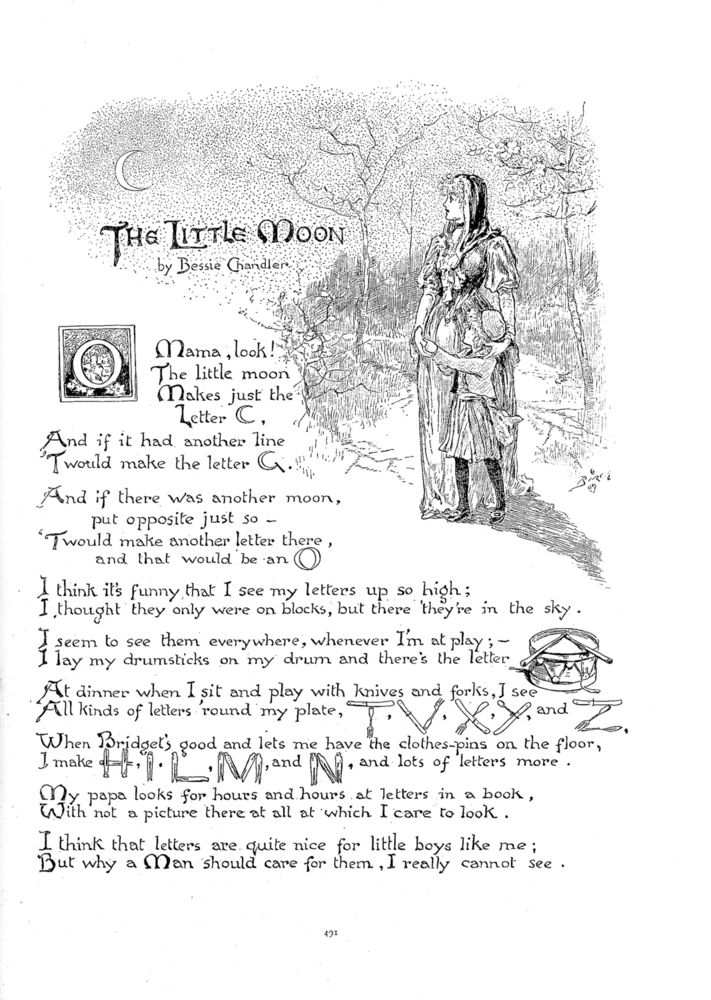 THE LITTLE MOON
by Bessie Chandler.
O Mama, look!
The little moon
Makes just the
Letter C,
And if it had another line
'Twould make the letter G.
And if there was another moon,
put opposite just so –
'Twould make another letter there,
and that would be an O
I think it's funny that I see my letters up so high;
I thought they only were on blocks, but there they're in the sky.
I seem to see them everywhere, whenever I'm at play; –
I lay my drumsticks on my drum and there's the letter X
At dinner when I sit and play with knives and forks, I see
All kinds of letters 'round my plate, T, V, X, Y, and Z.
When Bridget's good and lets me have the clothes-pins on the floor,
I make H, I, L, M, and N, and lots of letters more.
My papa looks for hours and hours at letters in a book,
With not a picture there at all at which I care to look.
I think that letters are quite nice for little boys like me;
But why a Man should care for them, I really cannot see.
491